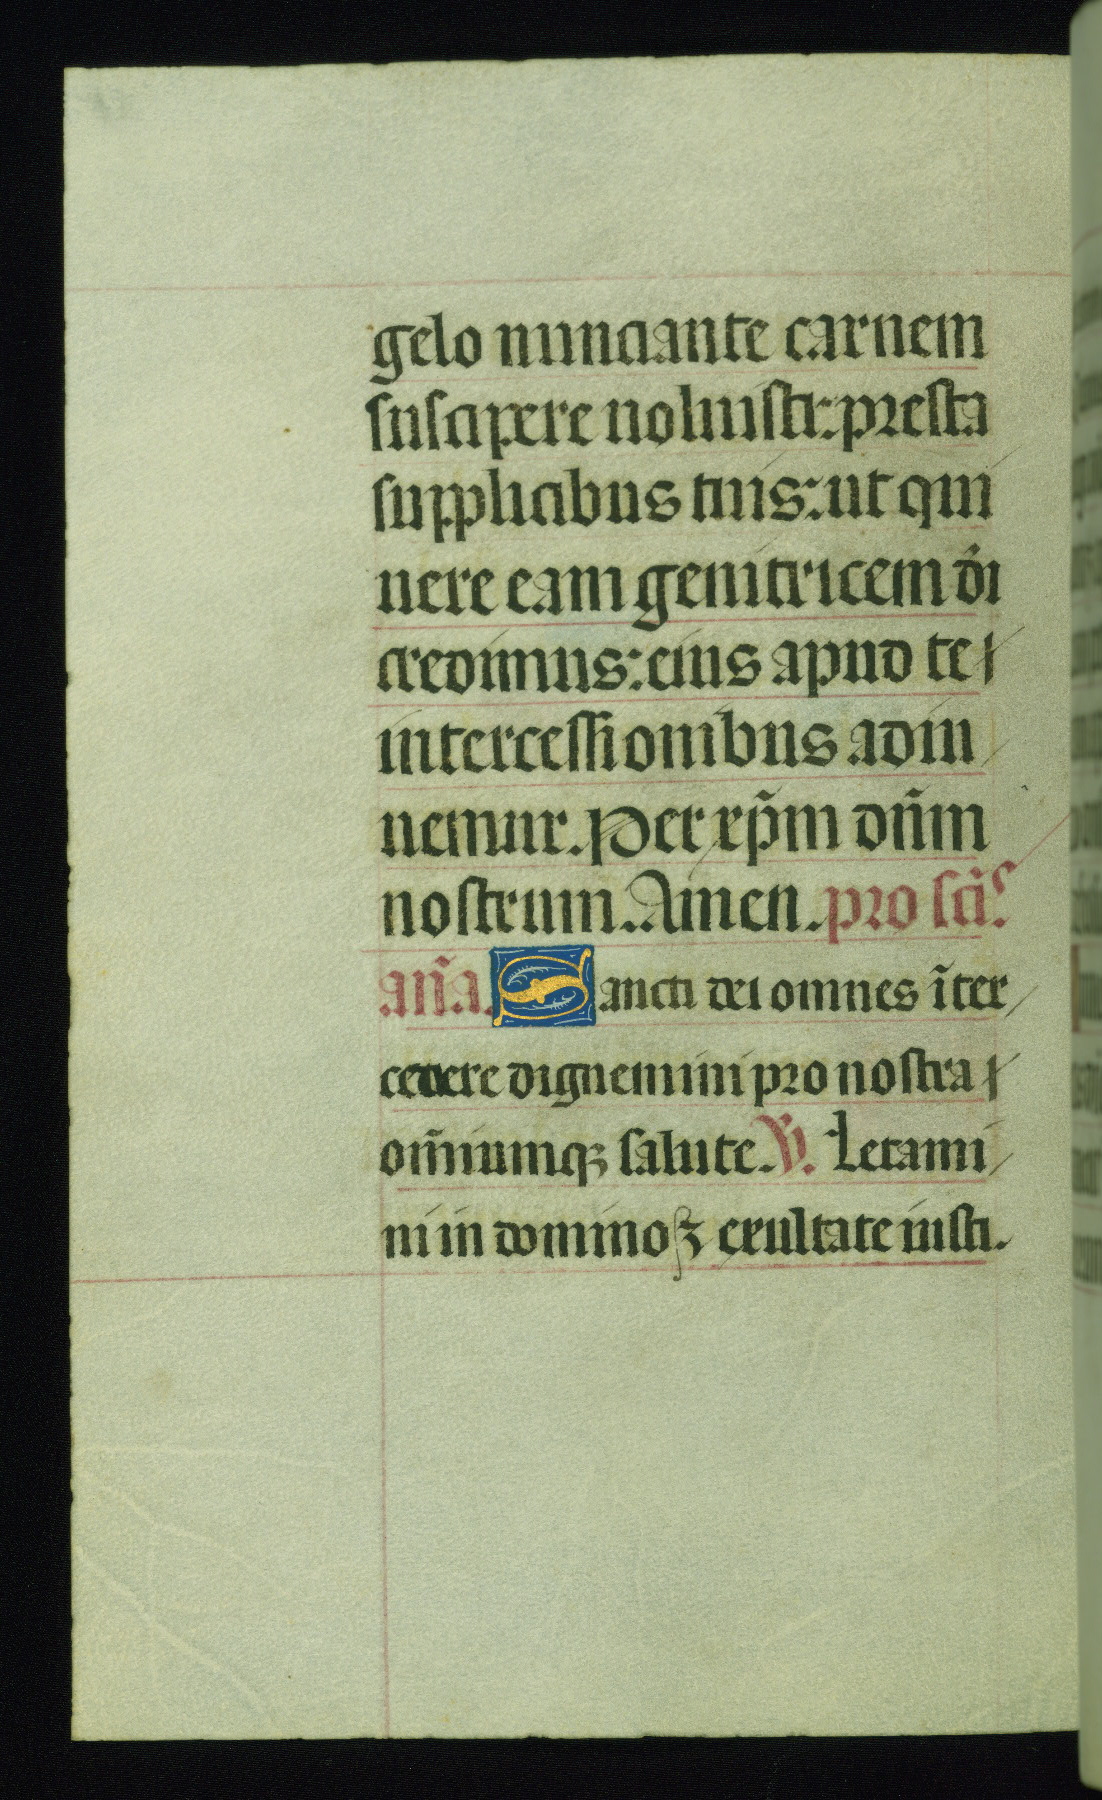 gelo nunciante carnem
suscipere voluisti: presta
supplicibus tuis: ut qui
vere eam genitricem dı̃
credimus: eius apud te
intercessionibus adiu
vemur. Per xp̃m dñm
nostrum. Amen. pro scı̃s.
añ a. Sancti dei omnes ı̃ter
cedere dignemini pro nostra
om̃iumqꝫ salute. ℣. Letami
ni in domino ⁊ exultate iusti.